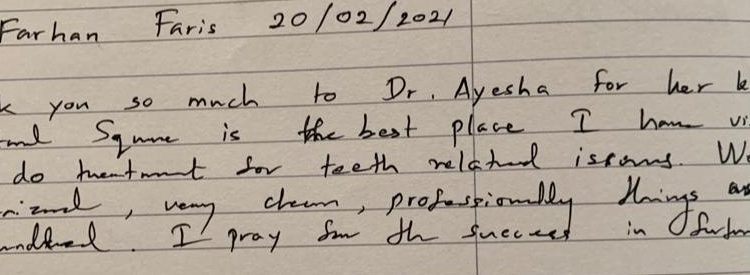 Farhan Faris 20/02/2021
you so much to Dr. Ayesha for her
Square is the best place I have
do treatment for teeth related issues.
, very clean, professionally things are
. I pray for the success in